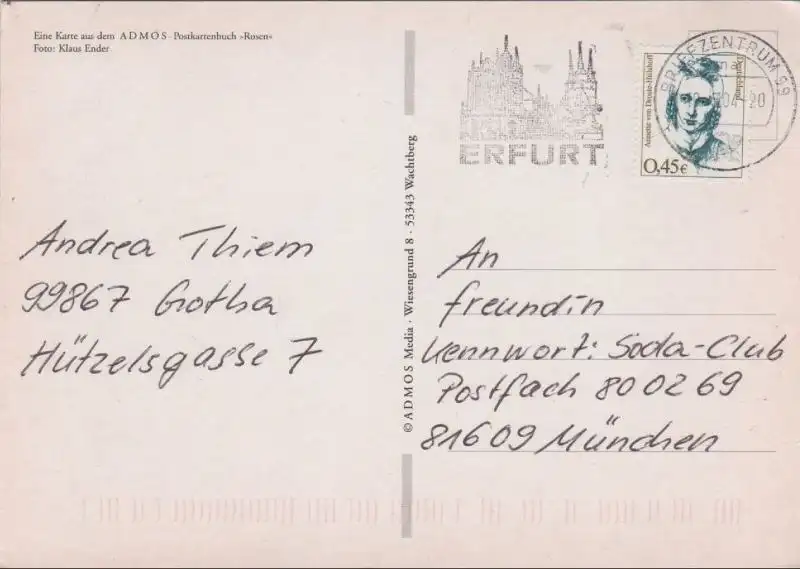 Eine Karte aus dem ADMOS-Postkartenbuch »Rosen«
Foto: Klaus Ender
© ADMOS Media · Wiesengrund 8 · 53343 Wachtberg
ERFURT
BRIEFZENTRUM 99
04-20
Annette von Droste-Hülshoff
Deutschland
0,45€
Andrea Thiem
99867 Gotha
Hützelsgasse 7
An
freundin
Kennwort: Soda-Club
Postfach 80 02 69
81609 München